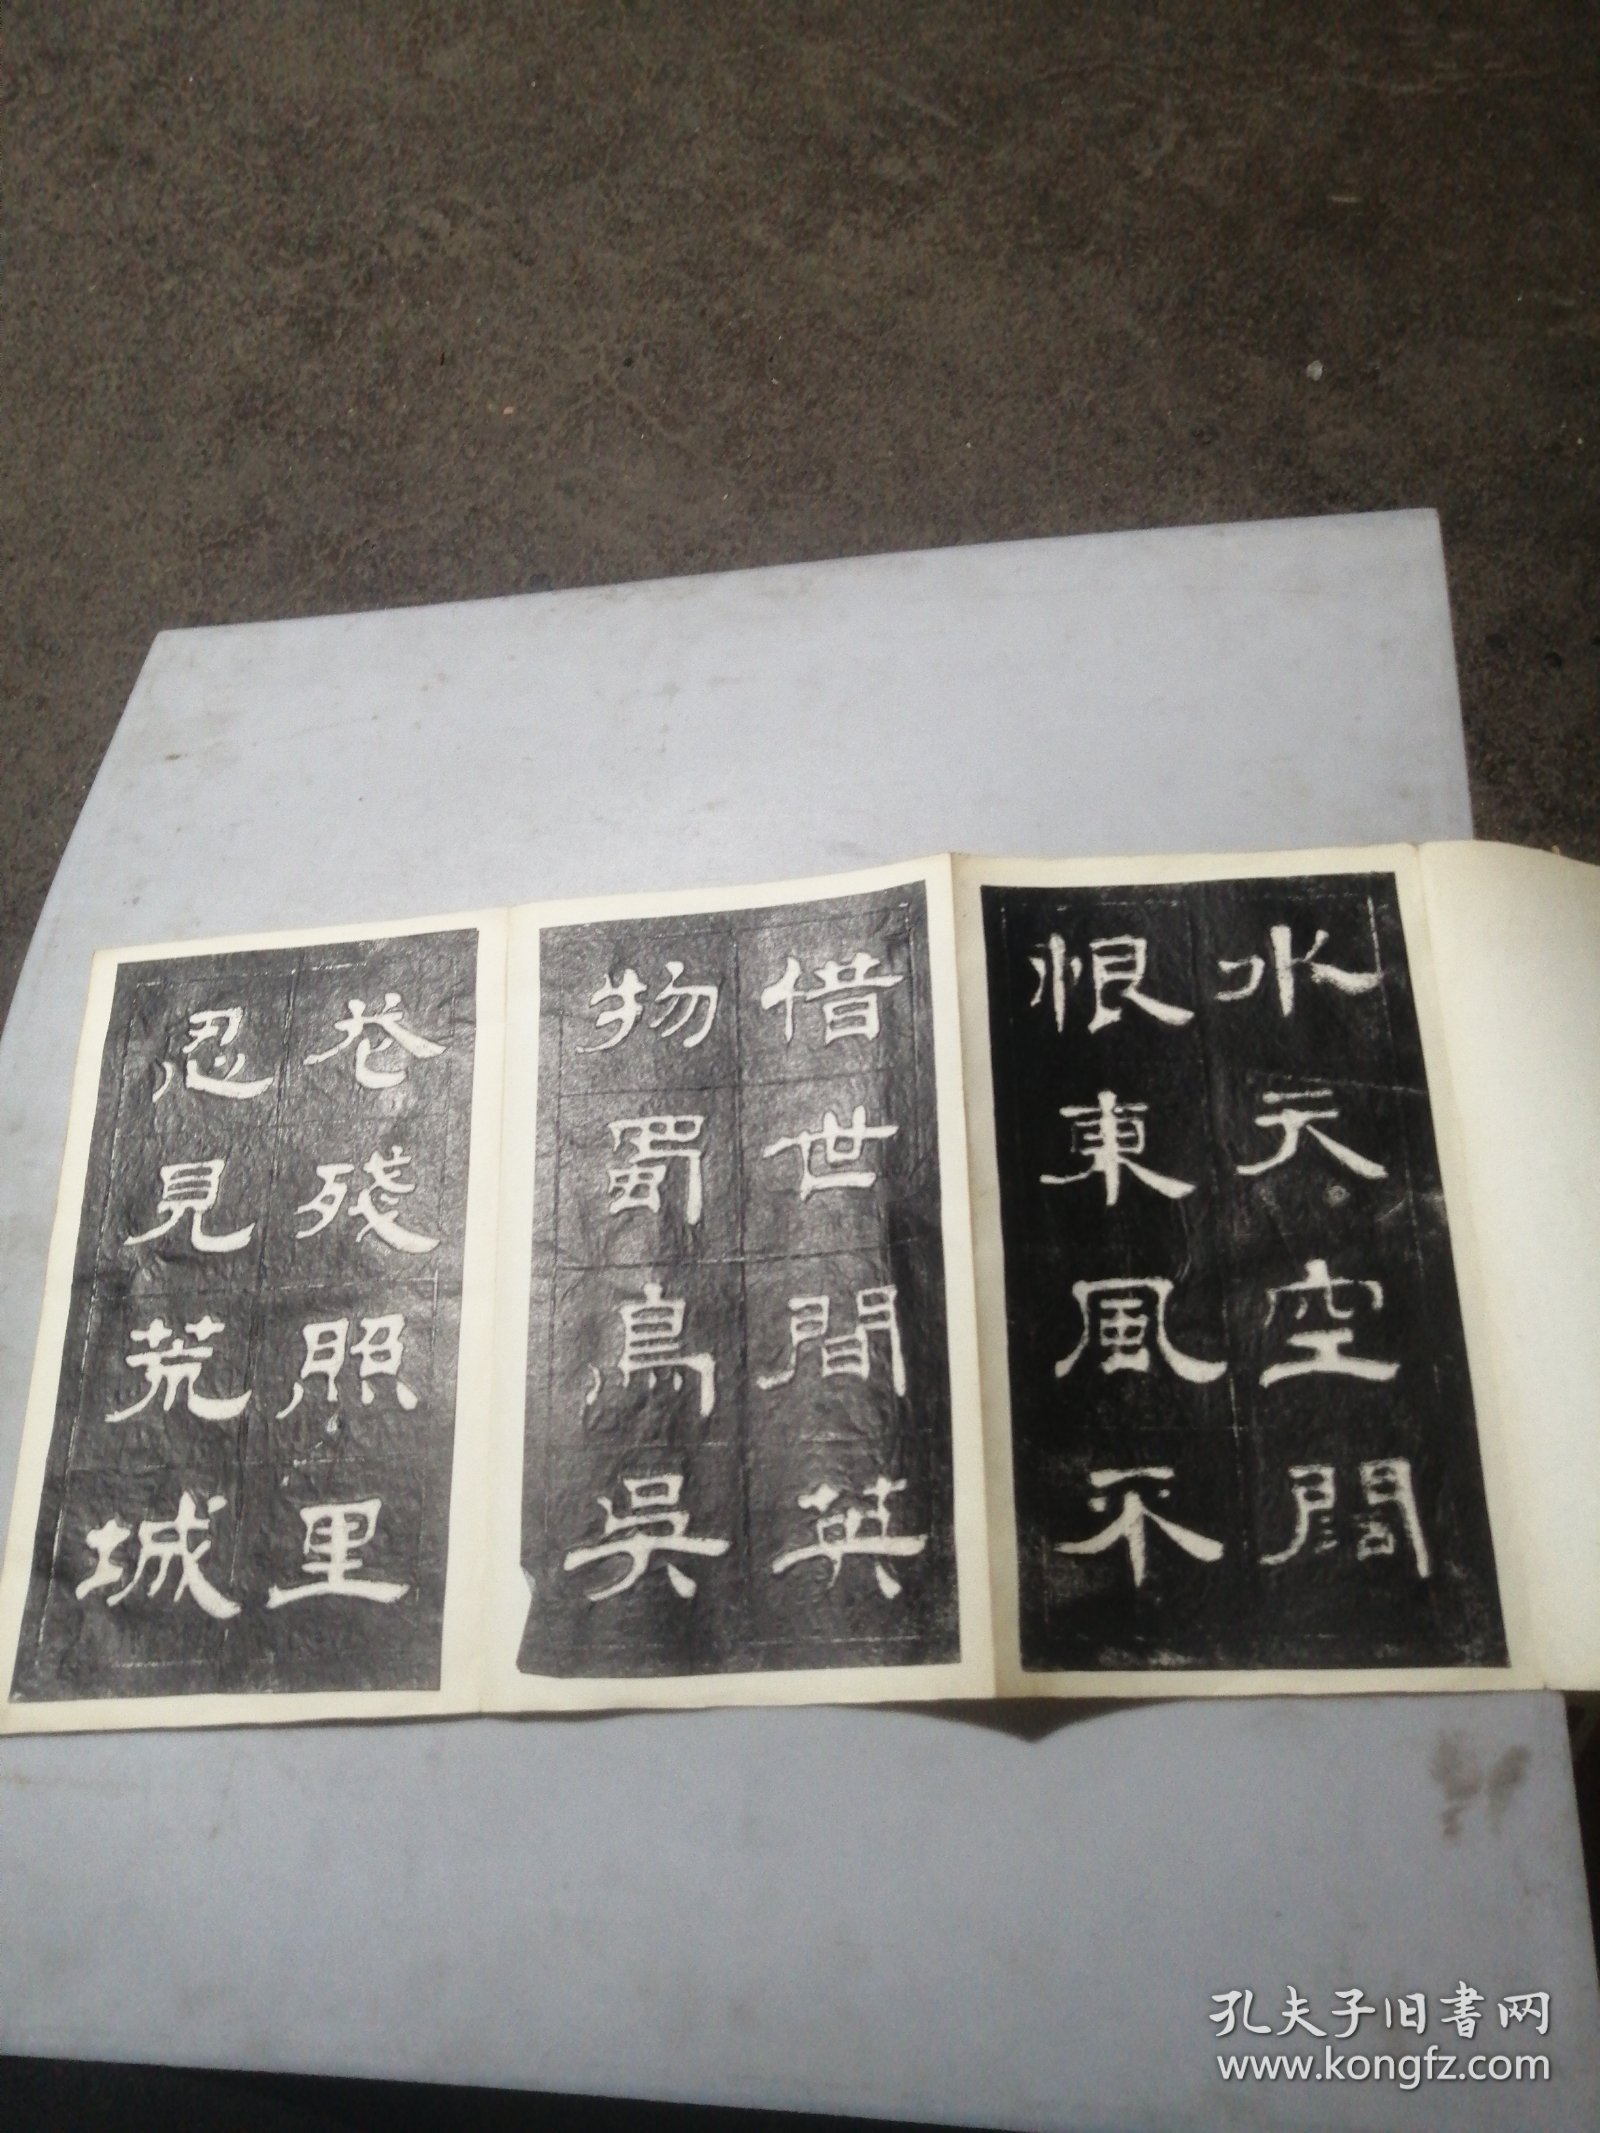 水天空闊
恨東風不
借世間英
物蜀鳥吳
花殘照里
忍見荒城
孔夫子旧书网
www.kongfz.com